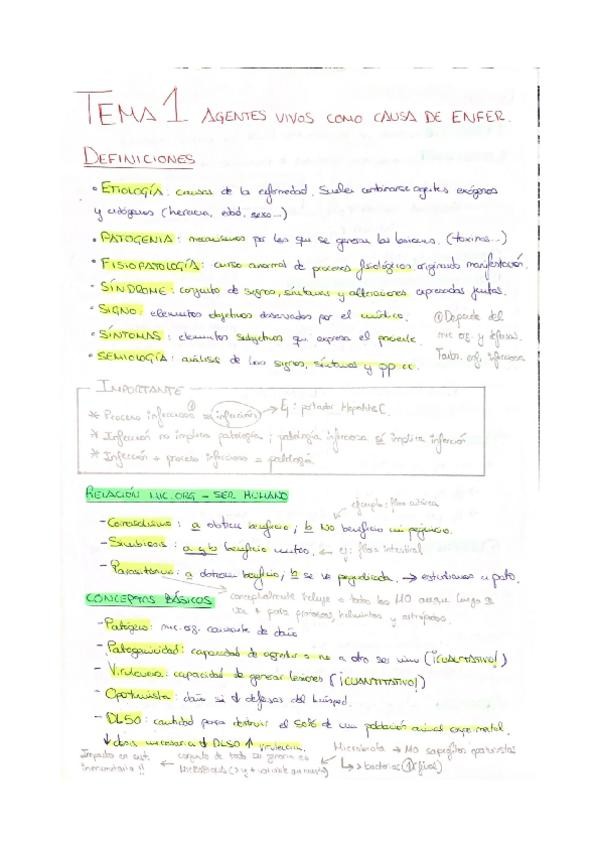 TEMA 1 AGENTES VIVOS COMO CAUSA DE ENFER.
DEFINICIONES
• ETIOLOGÍA: causas de la enfermedad. Suelen combinarse agentes exógenos
y endógenos (herencia, edad, sexo...)
• PATOGENIA: mecanismos por los que se generan las lesiones. (toxinas...)
• FISIOPATOLOGÍA: curso anormal de procesos fisiológicos originando manifestación.
- SÍNDROME: conjunto de signos, síntomas y alteraciones expresadas juntas.
• SIGNO: elementos objetivos observados por el médico.
• SÍNTOMAS: elementos subjetivos que expresa el paciente.
• SEMIOLOGÍA: análisis de los signos, síntomas y pp.cc.
① Depende del
mic. org. y defensas.
Tamb. org. infecciosa
IMPORTANTE
* Proceso infeccioso ① ≠ infección → Ej: portador Hepatitis C.
* Infección no implica patología; patología infecciosa sí implica infección
* Infección + proceso infeccioso = patología
RELACIÓN MIC.ORG - SER HUMANO
ejemplo: flora cutánea
- Comensalismo: a obtiene beneficio; b NO beneficio ni perjuicio.
- Simbiosis: a y b beneficio mutuo. ← ej: flora intestinal
- Parasitismo: a obtiene beneficio; b se ve perjudicada. → estudiamos a pato.
conceptualmente incluye a todos los MO aunque luego se
usa + para protozoos, helmintos y artrópodos.
CONCEPTOS BÁSICOS
- Patógeno: mic. org. causante de daño
- Patogenicidad: capacidad de agredir o no a otro ser vivo (¡CUALITATIVO!)
- Virulencia: capacidad de generar lesiones (¡CUANTITATIVO!)
- Oportunista: daño si ↓ defensas del huésped.
- DL50: cantidad para destruir el 50% de una población animal experimental.
↓ dosis necesaria ↓ DL50 ↑ virulencia.
Microbiota → MO saprofitos oportunistas
↳ > bacterias
Impacto en sist.
inmunitario !!
← conjunto de todo su genoma es
MICROBIOMA